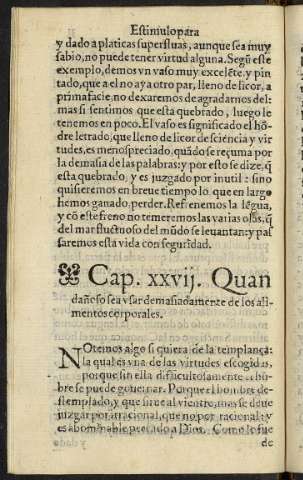 Estimulo para
y dado a platicas superfluas, aunque sea muy
sabio, no puede tener virtud alguna. Segũ este
exemplo, demos vn vaso muy excelẽte, y pin
tado, que a el no aya otro par, lleno de licor, a
prima facie, no dexaremos de agradarnos del:
mas si sentimos que està quebrado, luego le
tenemos en poco. El vaso es significado el hõ-
dre letrado, que lleno de licor de sciencia y vir
tudes, es menospreciado, quãdo se reçuma por
la demasia de las palabras: y por esto se dize, q̃
esta quebrado, y es juzgado por inutil: sino
quisieremos en breue tiempo lo que en largo
hemos ganado, perder. Refrenemos la lẽgua,
y cõ este freno no temeremos las varias olas, q̃
del mar fluctuoso del mũdo se leuantan: y pas
saremos esta vida con seguridad.
Cap. xxvij. Quan
dañoso sea vsar demasiadamente de los ali
mentos corporales.
NOtemos algo si quiera de la templança:
la qual es vna de las virtudes escogidas,
porque sin ella difficultosamente el hõ-
bre se puede gouernar. Porque el hombre de-
stemplado, y que sirue al vientre, mas se deue
juzgar por irracional, que no por racional: y
es abominable pecado a Dios. Como lo fue
de